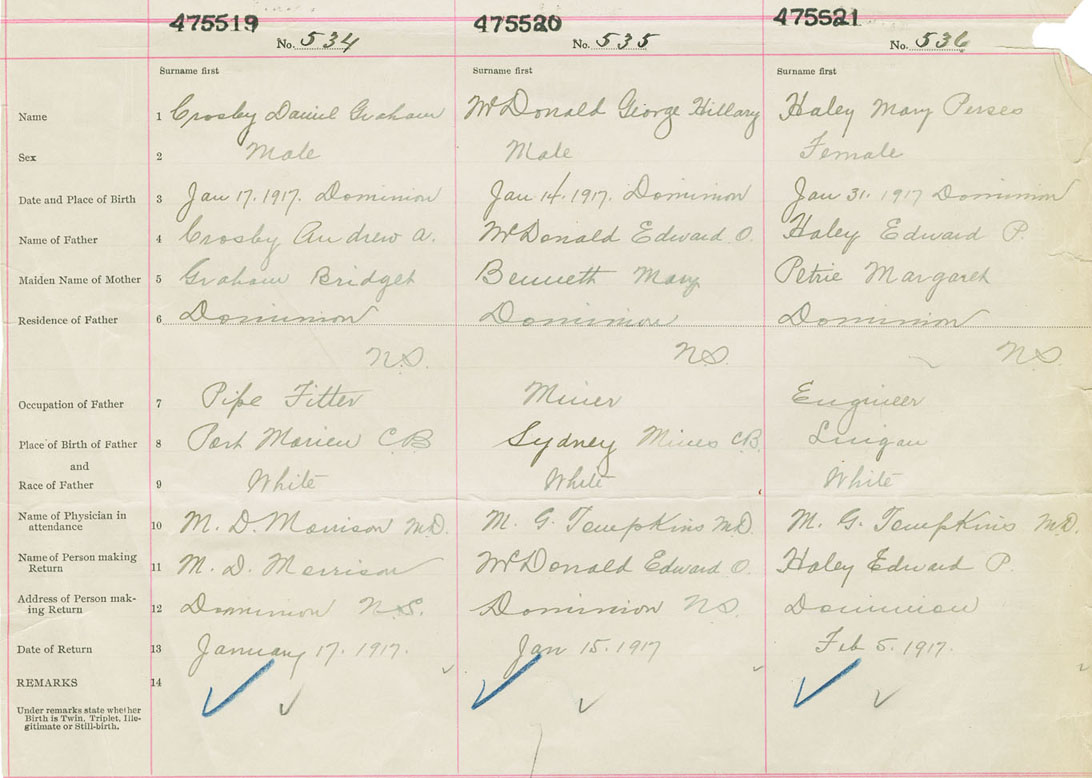 475519 475520 475521
No. 534 No. 535 No. 536
Surname first Surname first Surname first
Name 1 Crosby Daniel Graham McDonald George Hillary Haley Mary Perseo
Sex 2 Male Male Female
Date and Place of Birth 3 Jan 17. 1917. Dominion Jan 14. 1917. Dominion Jan 31. 1917 Dominion
Name of Father 4 Crosby Andrew A. McDonald Edward O. Haley Edward P.
Maiden Name of Mother 5 Graham Bridget Bennett Mary Petrie Margaret
Residence of Father 6 Dominion Dominion Dominion
N.S. N.S. N.S.
Occupation of Father 7 Pipe Fitter Miner Engineer
Place of Birth of Father 8 Port Morien C.B Sydney Mines C.B. Lingan
and
Race of Father 9 White White White
Name of Physician in
attendance 10 M. D. Morrison M.D. M. G. Tompkins M.D. M. G. Tompkins M.D.
Name of Person making
Return 11 M. D. Morrison McDonald Edward O. Haley Edward P.
Address of Person mak-
ing Return 12 Dominion N.S. Dominion N.S. Dominion
Date of Return 13 January 17. 1917. Jan 15. 1917 Feb 5. 1917.
REMARKS 14
Under remarks state whether
Birth is Twin, Triplet, Ille-
gitimate or Still-birth.